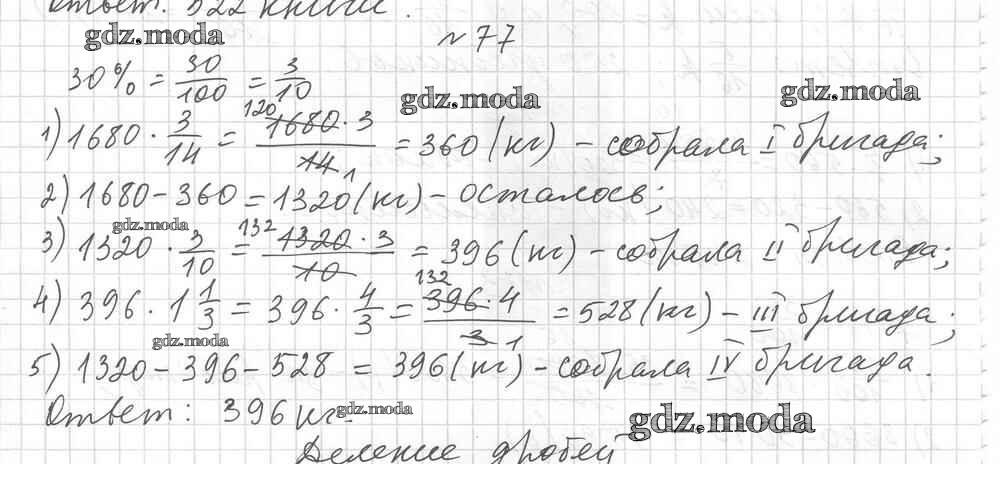 Ответ: 522 книги.
gdz.moda
№ 77
30% = 30/100 = 3/10
gdz.moda
gdz.moda
1) 1680 · 3/14 = 120 1680 · 3 / 14 1 = 360 (кг) - собрала I бригада;
2) 1680 - 360 = 1320 (кг) - осталось;
gdz.moda
3) 1320 · 3/10 = 132 1320 · 3 / 10 = 396 (кг) - собрала II бригада;
4) 396 · 1 1/3 = 396 · 4/3 = 132 396 · 4 / 3 1 = 528 (кг) - III бригада;
gdz.moda
5) 1320 - 396 - 528 = 396 (кг) - собрала IV бригада.
Ответ: 396 кг.
gdz.moda
gdz.moda
Деление дробей